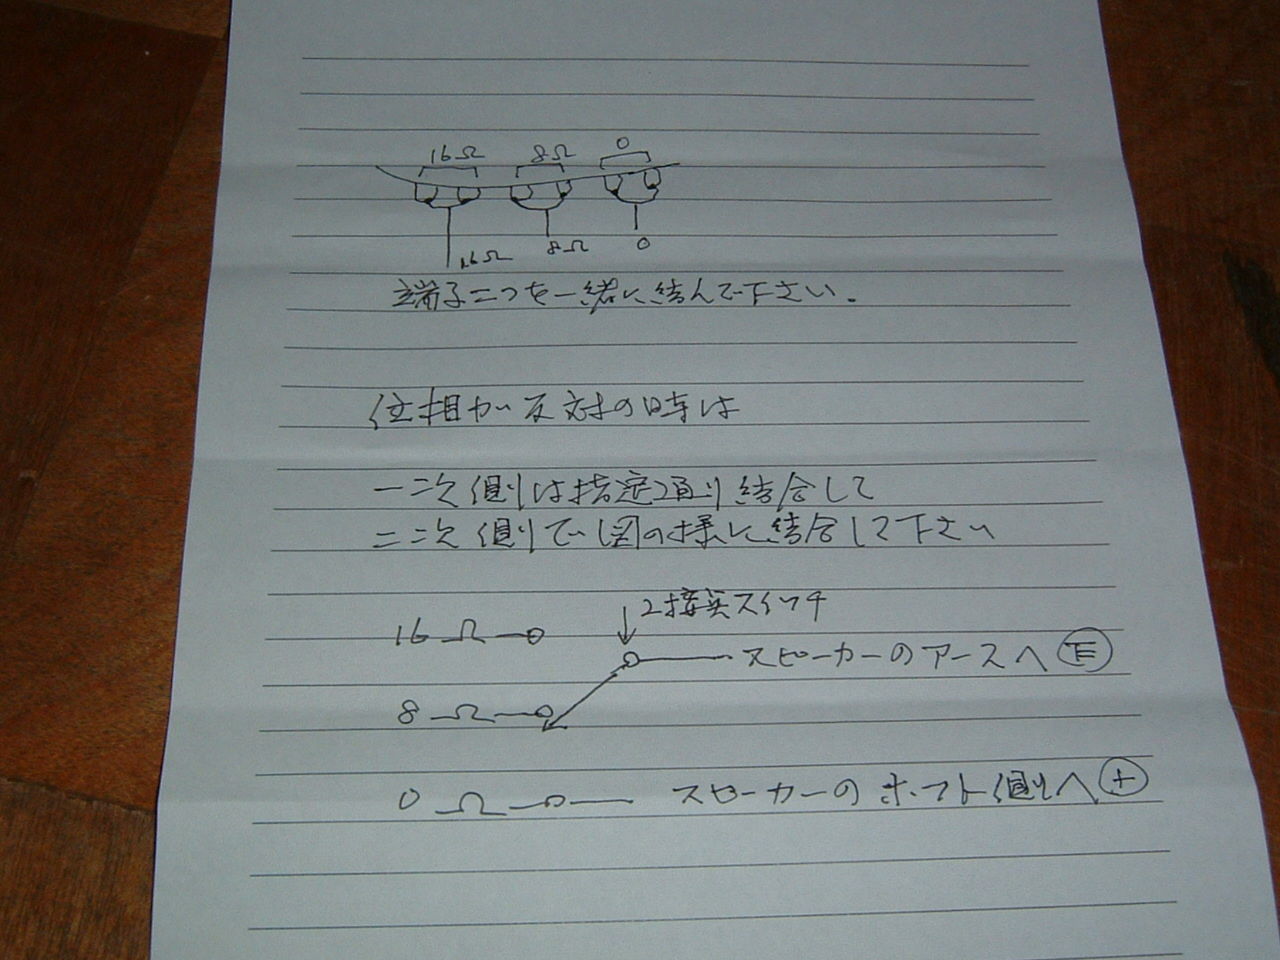 16Ω 8Ω 0
16Ω 8Ω 0
端子二つを一緒に結んで下さい.
位相が反対の時は
一次側は指定通り結合して
二次側で図の様に結合して下さい
2接点スイッチ
16 Ω
スピーカーのアースへ
8 Ω
0 Ω スピーカーのホット側へ +